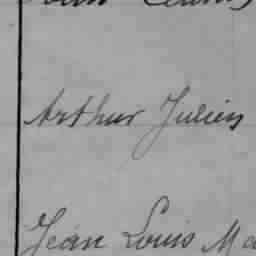 Arthur Julien
Jean Louis Ma